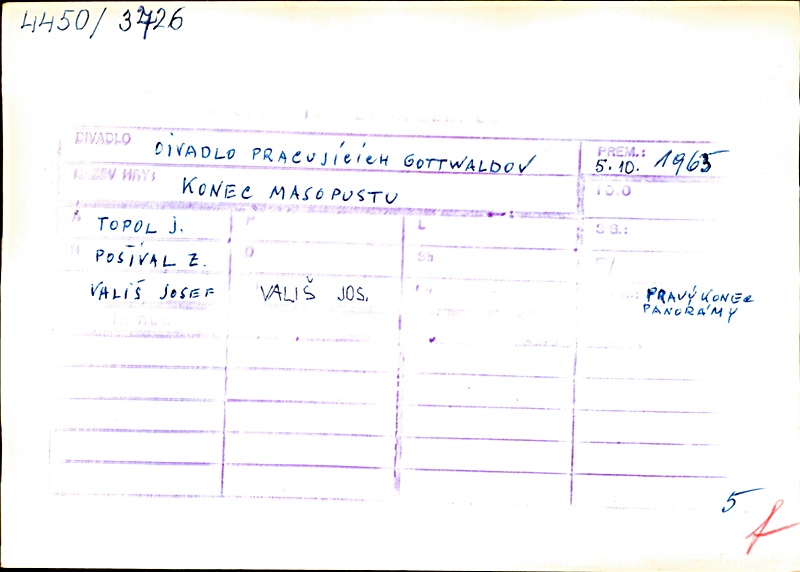 4450/ 3726
DIVADLO DIVADLO PRACUJÍCÍCH GOTTWALDOV PREM.: 5. 10. 1965
NÁZEV HRY: KONEC MASOPUSTU
A TOPOL J. P L SG.:
POSÍVAL Z. O Sb F/
VALIŠ JOSEF VALIŠ JOS. PRAVÝ KONEC
PANORÁMY
5